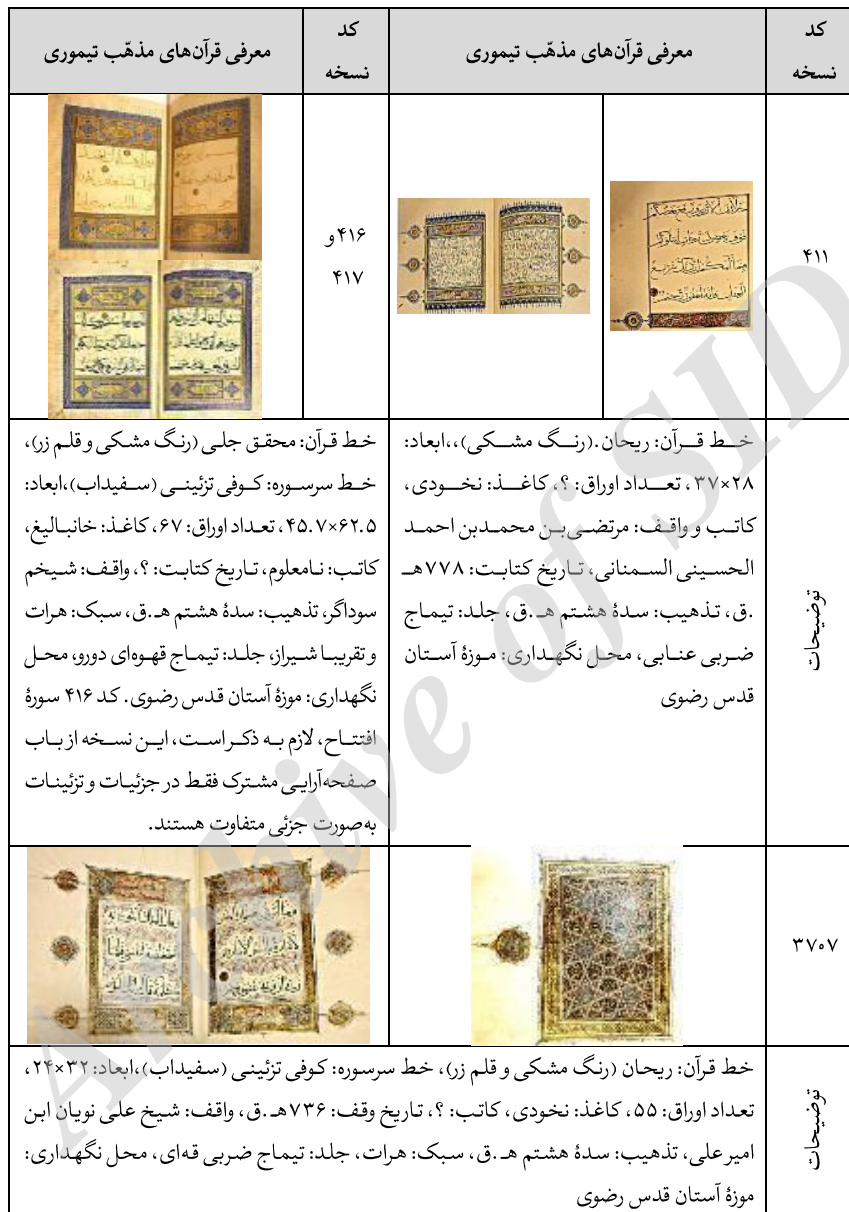 کد
نسخه
معرفی قرآن‌های مذهّب تیموری
کد
نسخه
معرفی قرآن‌های مذهّب تیموری
۴۱۱
۴۱۶ و
۴۱۷
توضیحات
خط قرآن: ریحان.(رنگ مشکی)،،ابعاد:
۳۷×۲۸، تعداد اوراق: ؟، کاغذ: نخودی،
کاتب و واقف: مرتضی‌بن محمدبن احمد
الحسینی السمنانی، تاریخ کتابت: ۷۷۸هـ
.ق، تذهیب: سدهٔ هشتم هـ.ق، جلد: تیماج
ضربی عنابی، محل نگهداری: موزهٔ آستان
قدس رضوی
خط قرآن: محقق جلی (رنگ مشکی و قلم زر)،
خط سرسوره: کوفی تزئینی (سفیداب)،ابعاد:
۴۵.۷×۶۲.۵، تعداد اوراق: ۶۷، کاغذ: خانبالیغ،
کاتب: نامعلوم، تاریخ کتابت: ؟، واقف: شیخم
سوداگر، تذهیب: سدهٔ هشتم هـ.ق، سبک: هرات
و تقریبا شیراز، جلد: تیماج قهوه‌ای دورو، محل
نگهداری: موزهٔ آستان قدس رضوی. کد ۴۱۶ سورهٔ
افتتاح، لازم به ذکر است، این نسخه از باب
صفحه‌آرایی مشترک فقط در جزئیات و تزئینات
به‌صورت جزئی متفاوت هستند.
۳۷۰۷
توضیحات
خط قرآن: ریحان (رنگ مشکی و قلم زر)، خط سرسوره: کوفی تزئینی (سفیداب)،ابعاد: ۳۲×۲۴،
تعداد اوراق: ۵۵، کاغذ: نخودی، کاتب: ؟، تاریخ وقف: ۷۳۶هـ.ق، واقف: شیخ علی نویان ابن
امیرعلی، تذهیب: سدهٔ هشتم هـ.ق، سبک: هرات، جلد: تیماج ضربی قه‌ای، محل نگهداری:
موزهٔ آستان قدس رضوی
Archive of SID